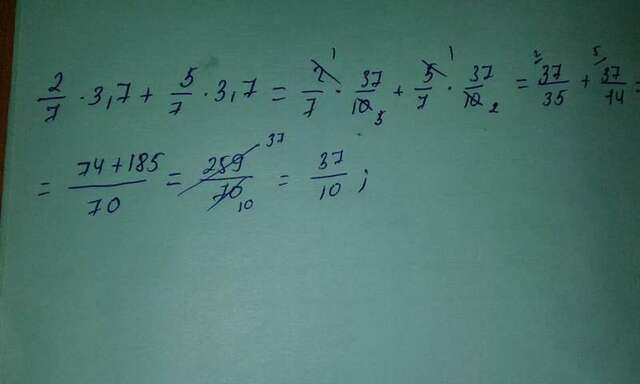 2/7 · 3,7 + 5/7 · 3,7 = 2/7 1 · 37/10 5 + 5/7 1 · 37/10 2 = 2 37/35 + 5 37/14 =
= 74+185/70 = 259/70 37 10 = 37/10 ;